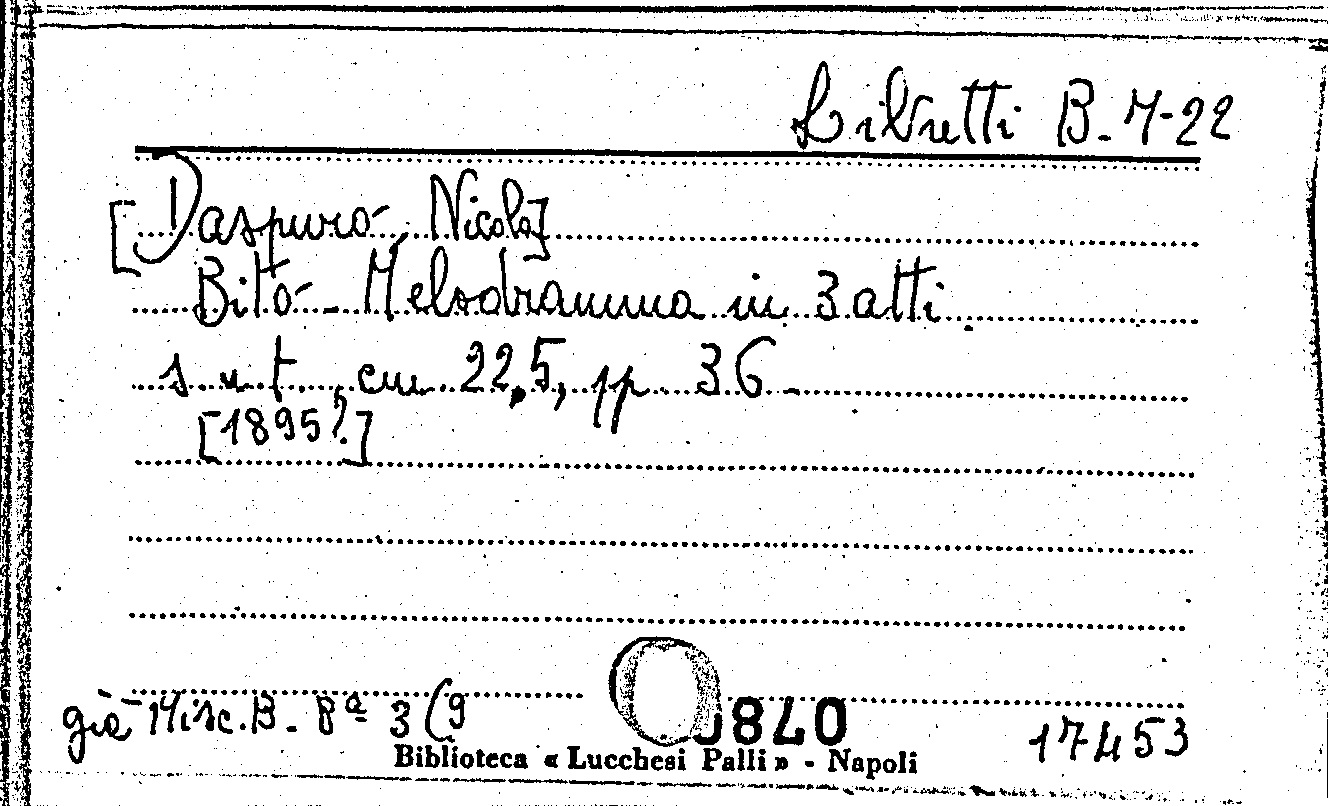 Libretti B. 7-22
[Daspuro, Nicola]
Bito - Melodramma in 3 atti.
s. n. t., cm 22,5, pp 36 -
[1895?]
già Misc. B. 8ª 3 (9
17453
Biblioteca « Lucchesi Palli » - Napoli